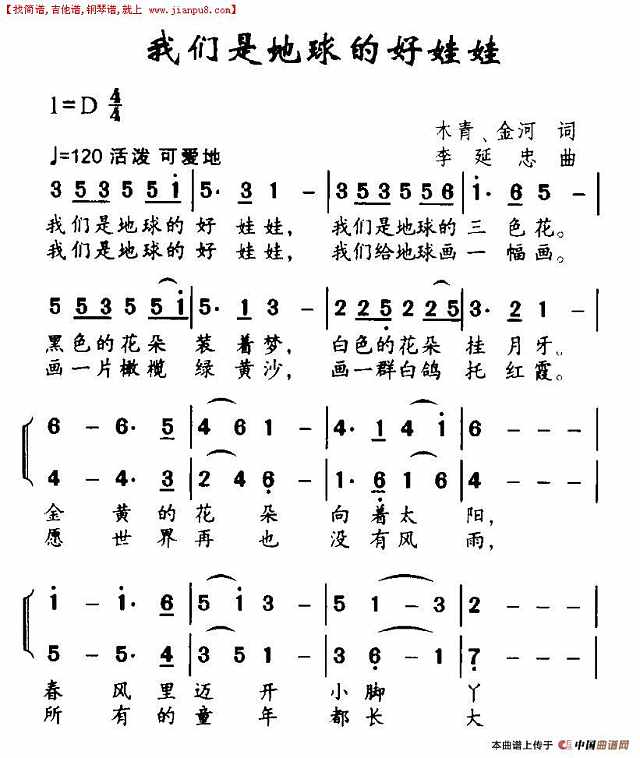 【找简谱,吉他谱,钢琴谱,就上 www.jianpu8.com】
我们是地球的好娃娃
1=D 4/4
木青、金河 词
♩=120 活泼 可爱地
李延忠 曲
3 5 3 5 5 i | 5· 3 1 - | 3 5 3 5 5 6 | i· 6 5 - |
我们是地球的 好 娃娃, 我们是地球的 三 色花。
我们是地球的 好 娃娃, 我们给地球画一 幅画。
5 5 3 5 5 5 i | 5· 1 3 - | 2 2 5 2 2 5 | 3· 2 1 - |
黑色的花朵 装 着梦, 白色的花朵 挂 月牙。
画一片橄榄 绿 黄沙, 画一群白鸽 托 红霞。
6 - 6· 5 | 4 6 1 - | 4· 1 4 i | 6 - - - |
4 - 4· 3 | 2 4 6 - | 1· 6 1 6 | 4 - - - |
金 黄的花 朵 向着太 阳,
愿 世界再 也 没有风 雨,
i - i· 6 | 5 i 3 - | 5 i - 3 | 2 - - - |
5 - 5· 4 | 3 5 1 - | 3 6 - 1 | 7 - - - |
春 风里迈 开 小脚 丫
所 有的童 年 都长 大
本曲谱上传于 中国曲谱网